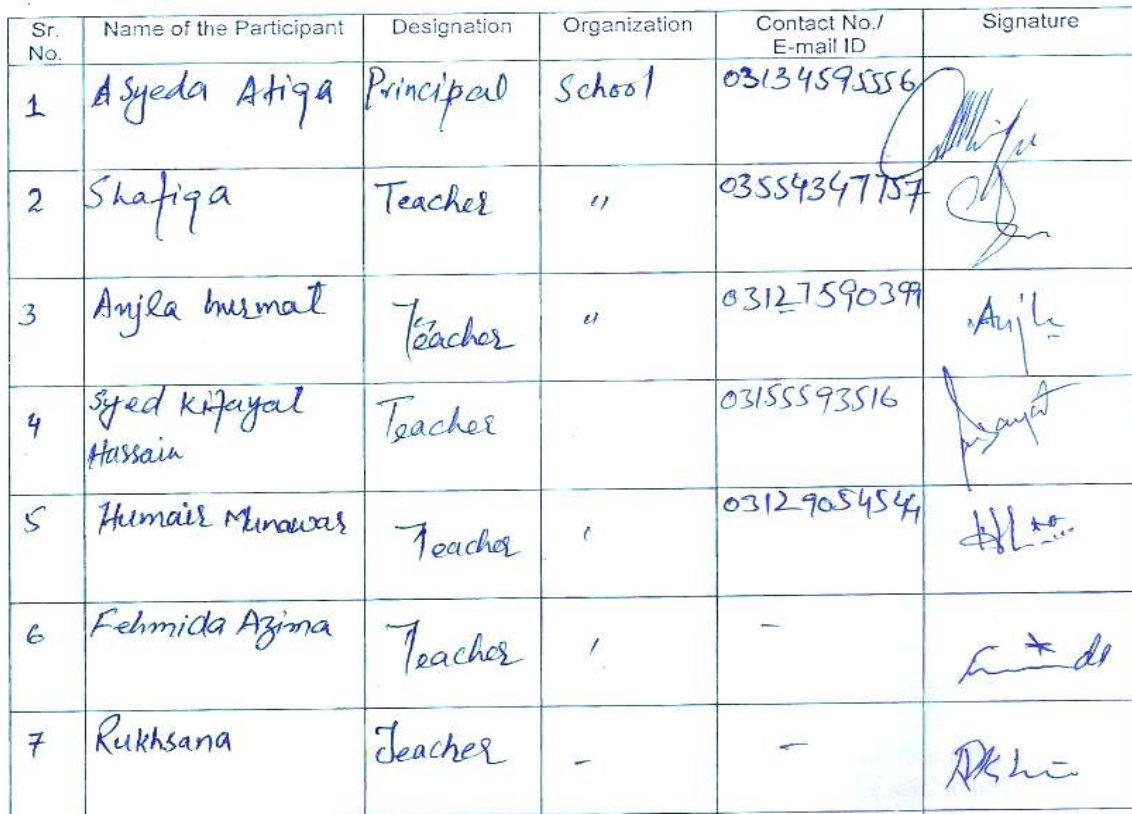 Sr. No. Name of the Participant Designation Organization Contact No./ E-mail ID Signature
1 A Syeda Atiqa Principal School 03134595556
2 Shafiqa Teacher " 03554347757
3 Anjla Teacher " 03127590399 Anjla
4 Syed Kifayal Teacher 03155593516
Hussain
5 Humair Munawar Teacher ' 03129054544
6 Fehmida Azima Teacher ' -
7 Rukhsana Teacher - -